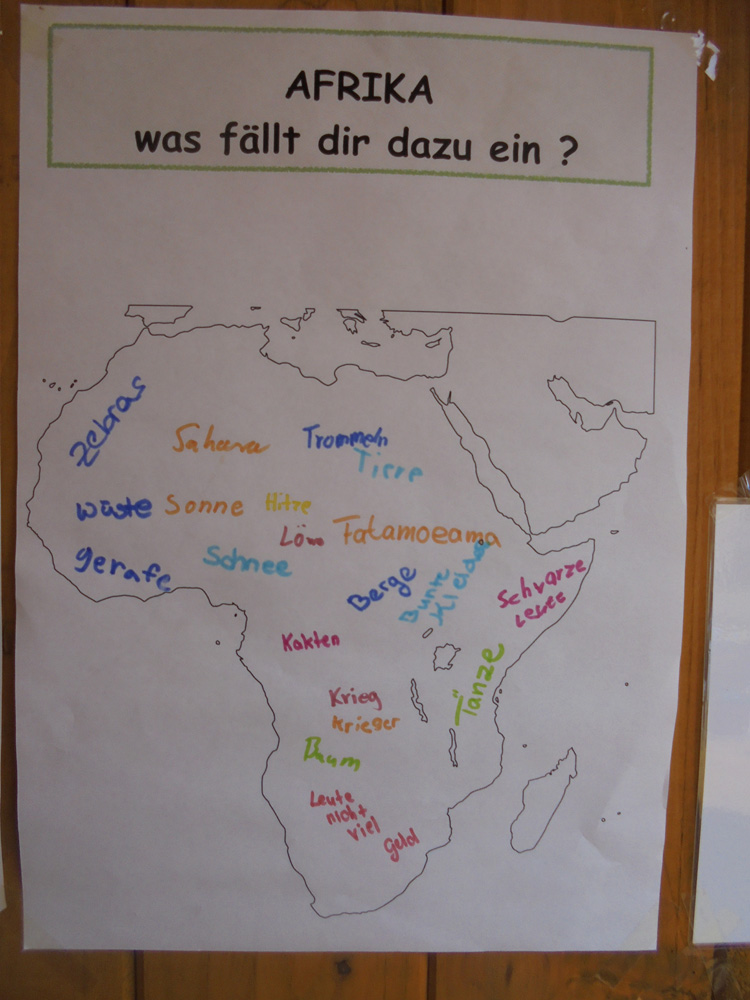 AFRIKA
was fällt dir dazu ein ?
Zebras
Sahara
Trommeln
Tiere
wüste
Sonne
Hitze
Löw
Fatamoeama
gerafe
Schnee
Berge
Bunte
Kleider
Schvarze
Leute
Kakten
Tänze
Krieg
Krieger
Baum
Leute
nicht
viel
geld